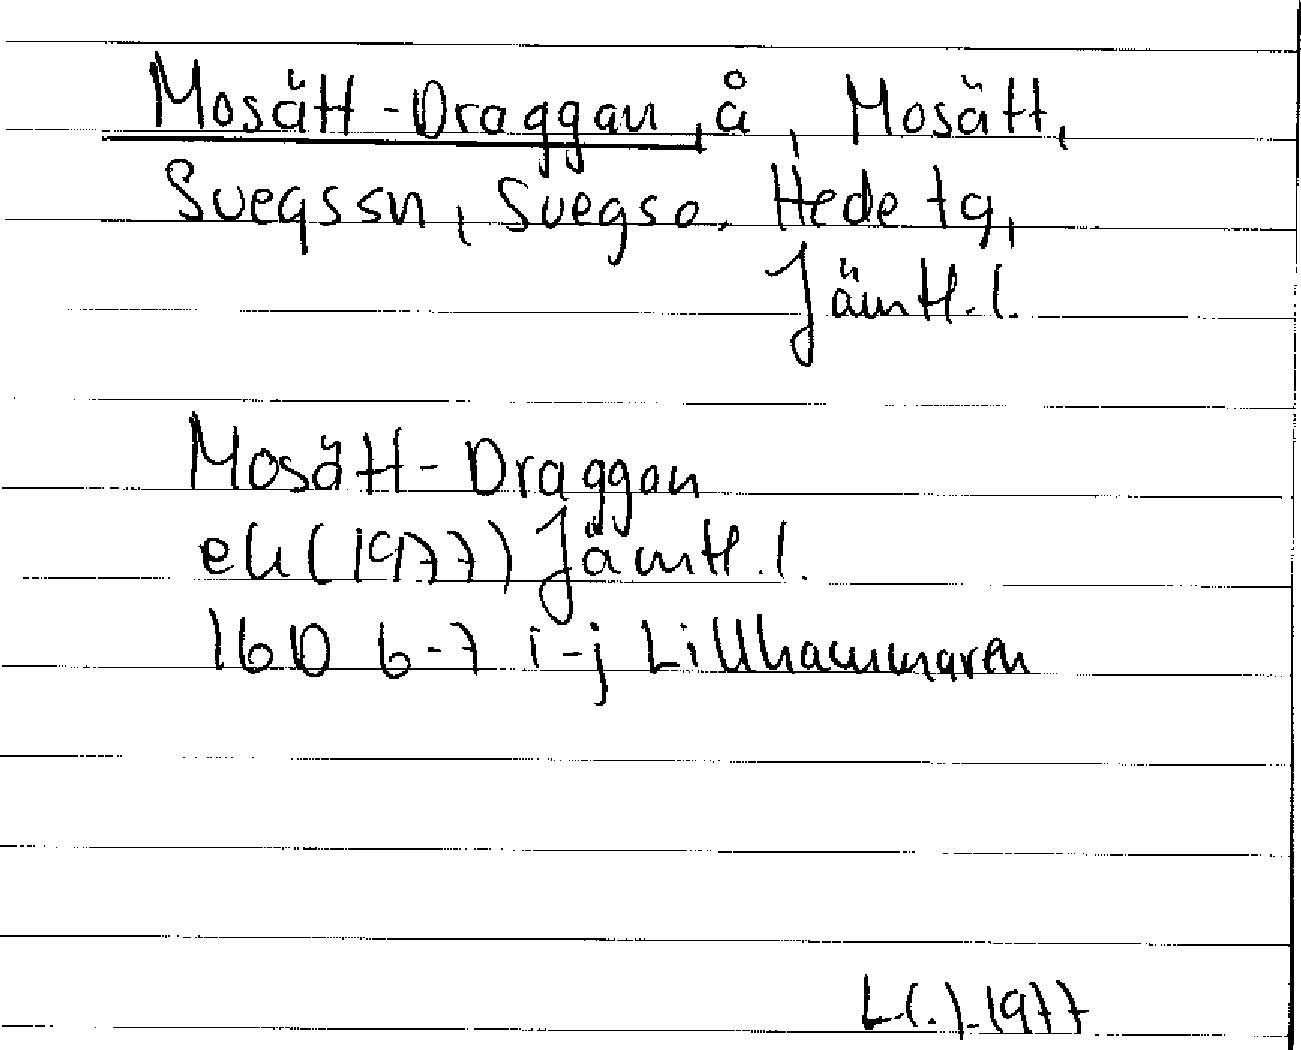 Mosätt-Draggan, å, Mosätt,
Svegssn, Svegso. Hede tg,
Jämtl.l.
Mosätt-Draggan
ek(1977) Jämtl.l.
16D 6-7 i-j Lillhammaren
L(.).1977